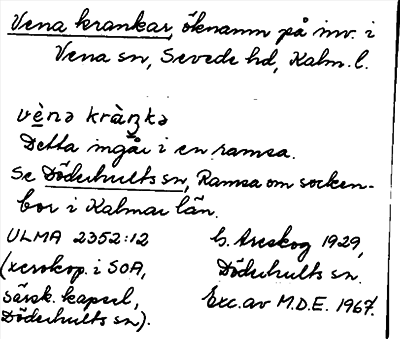 Vena krankar, öknamn på inv. i
Vena sn, Sevede hd, Kalm. l.
vènə kràŋkə
Detta ingår i en ramsa.
Se Döderhults sn, Ramsa om socken-
bor i Kalmar län.
ULMA 2352:12 G. Areskog 1929,
(xerokop. i SOA, Döderhults sn.
särsk. kapsel, Exc. av M.D.E. 1967.
Döderhults sn).